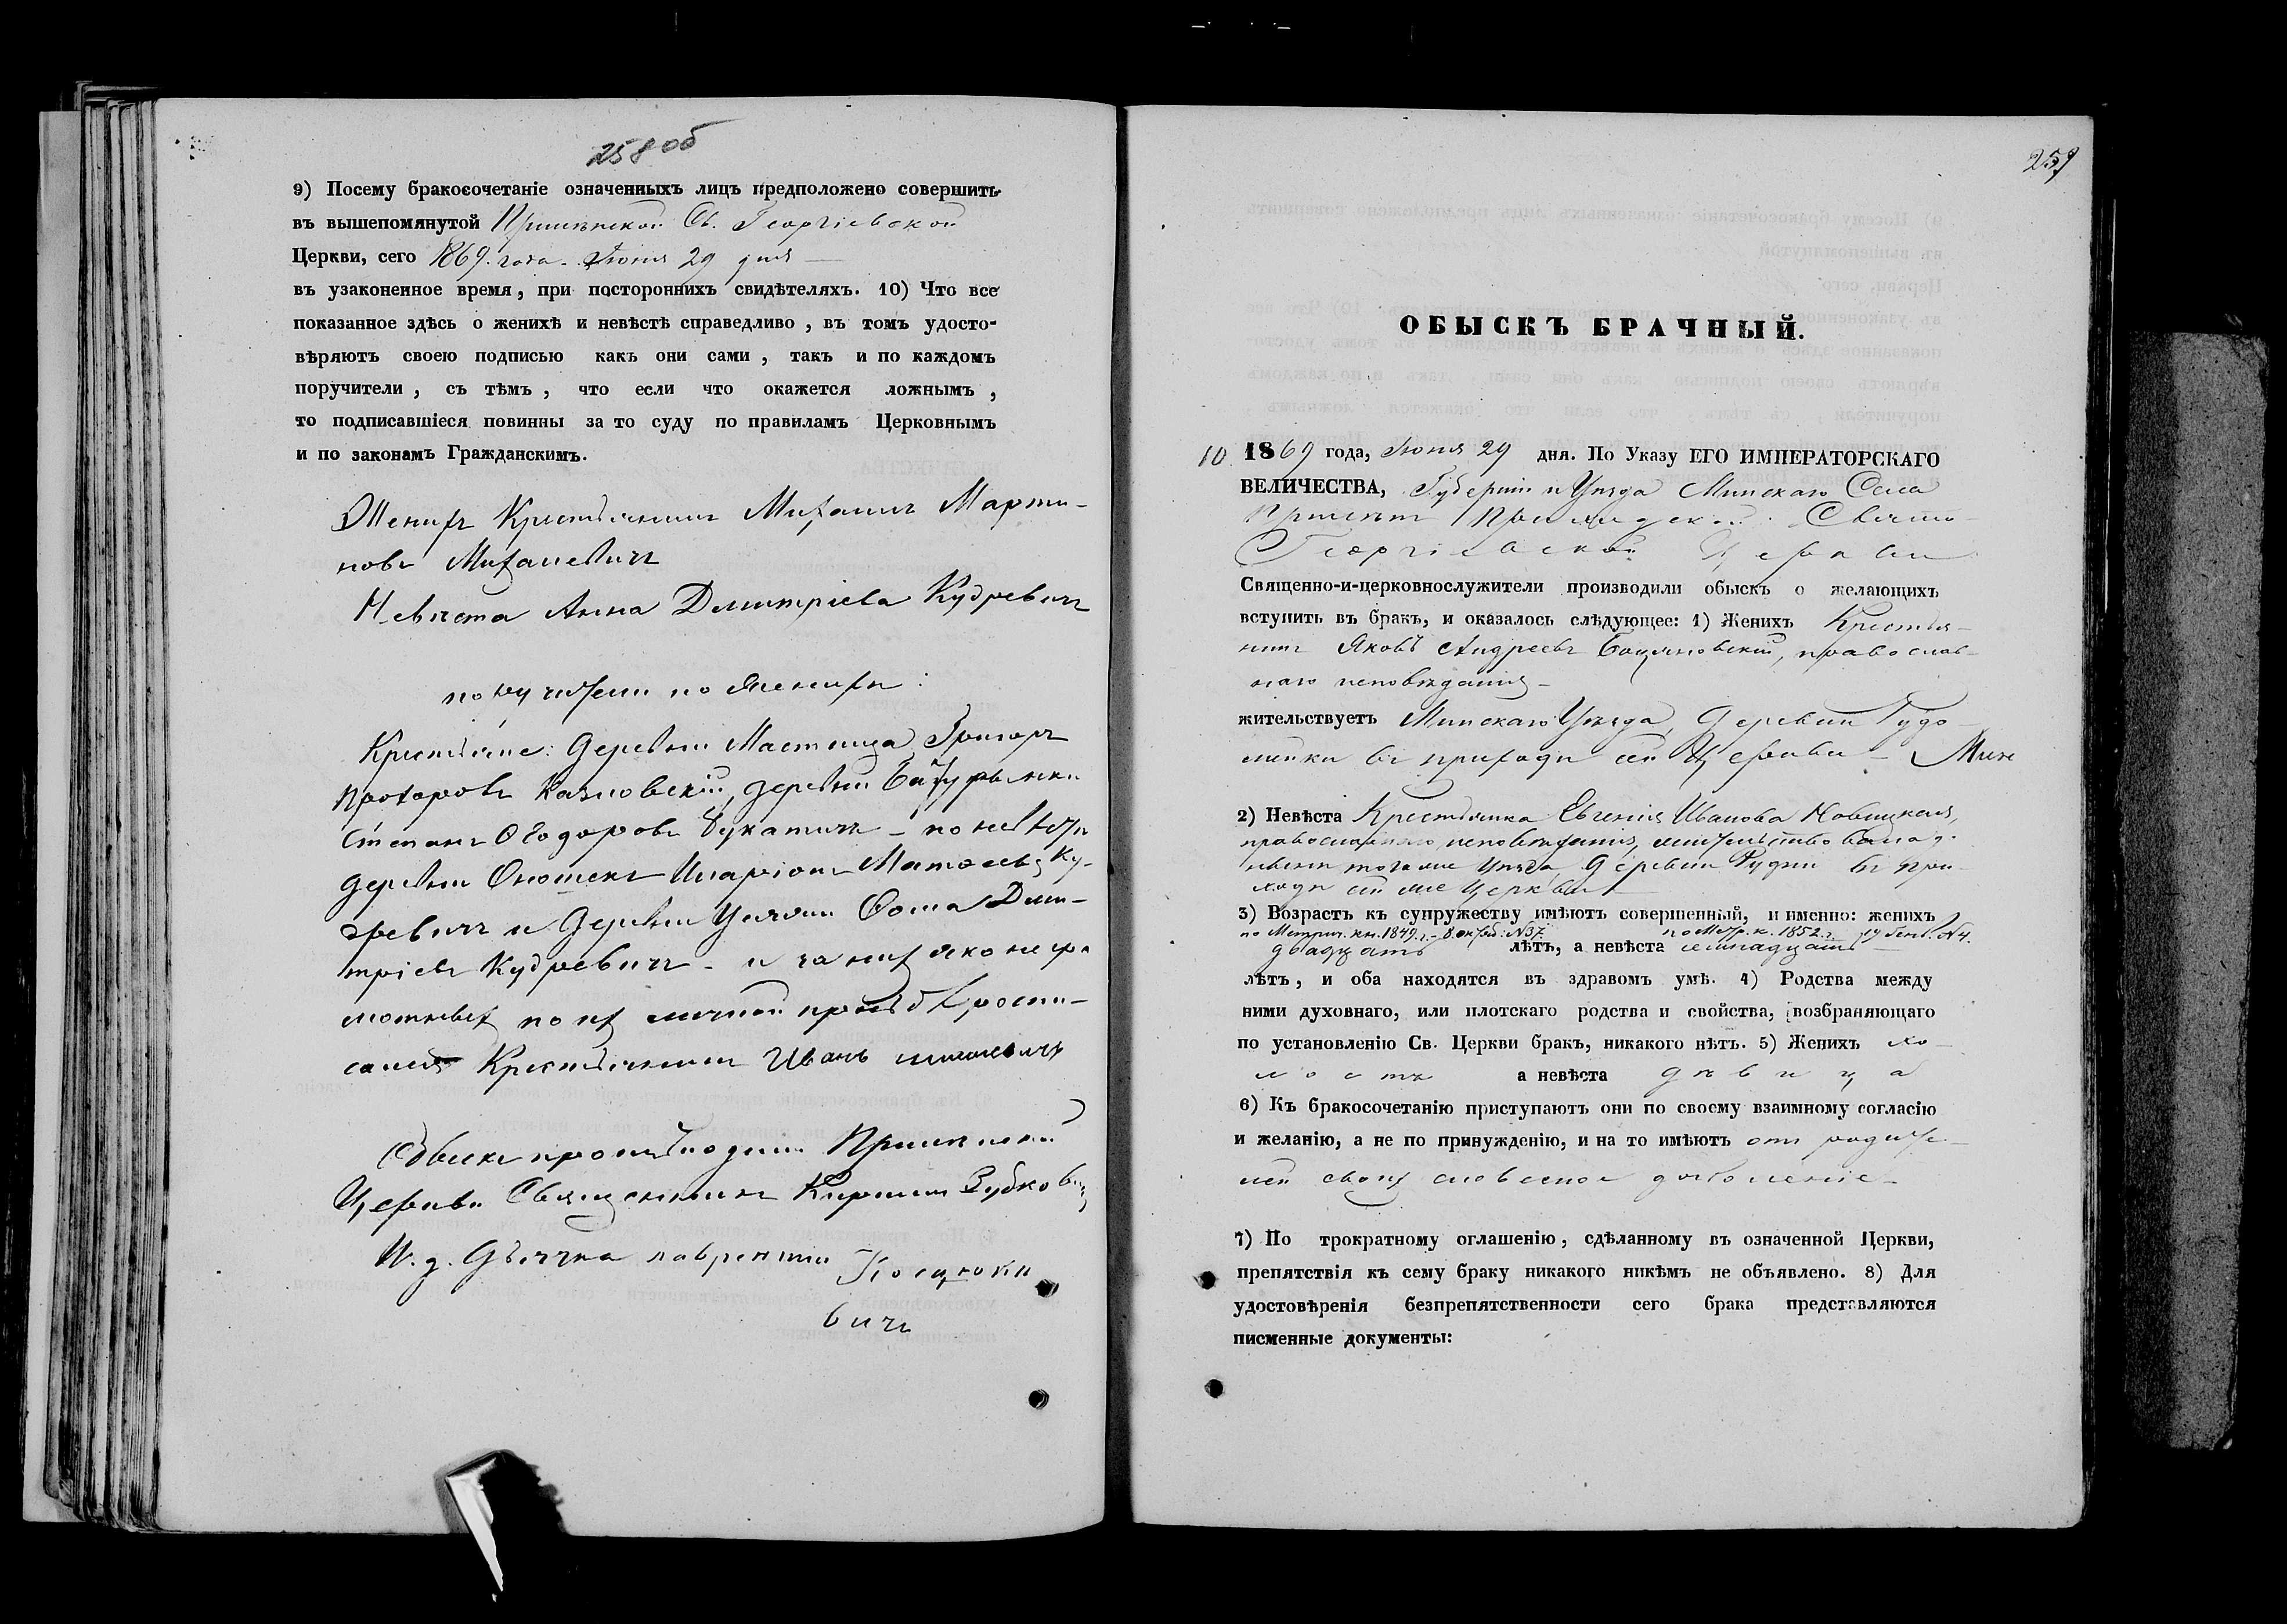 258 об
9) Посему бракосочетаніе означенныхъ лицъ предположено совершить
въ вышепомянутой Св. Георгіевской
Церкви, сего 1869. года. Іюня 29 дня
въ узаконенное время, при постороннихъ свидѣтеляхъ. 10) Что все
показанное здѣсь о женихѣ и невѣстѣ справедливо, въ томъ удосто-
вѣряютъ своею подписью какъ они сами, такъ и по каждомъ
поручители, съ тѣмъ, что если что окажется ложнымъ,
то подписавшіеся повинны за то суду по правиламъ Церковнымъ
и по законамъ Гражданскимъ.
Женихъ Крестьянинъ Михаилъ Марти-
новъ Михалевичъ
Невѣста Анна Димитріева Кудревичъ
поручители по женихѣ:
Крестьяне: деревни Мастица Григоръ
Прохоровъ Казловскій, деревни
Степанъ Ѳеодоровъ – по невѣстѣ
деревни Иларіонъ Матѳеевъ Ку-
древичъ и деревни Ѳома Дим-
тріевъ Кудревичъ – и за нихъ яко негра
мотныхъ по их личной просьбѣ роспи-
сался Крестьянинъ Иванъ
Обыскъ производили
Церкви Священникъ Кирилъ Зубковичъ
И. д. Дьячка лаврентій Косцюки
вичъ
259
ОБЫСКЪ БРАЧНЫЙ.
10 1869 года, Іюня 29 дня. По Указу ЕГО ИМПЕРАТОРСКАГО
ВЕЛИЧЕСТВА, Губерніи и Уѣзда Минскаго Села
Свято
Георгіевской Церкви
Священно-и-церковнослужители производили обыскъ о желающихъ
вступить въ бракъ, и оказалось слѣдующее: 1) Женихъ Крестья-
нинъ Яковъ Андреевъ Боцяновскій, православ-
наго исповѣданія –
жительствуетъ Минскаго Уѣзда, деревни
въ приходѣ сей Церкви –
2) Невѣста Крестьянка Евгенія Иванова Новицкая,
православнаго исповѣданія, жительство
того же Уѣзда, деревни Рудни въ при-
ходѣ сей же Церкви
3) Возрастъ къ супружеству имѣютъ совершенный, и именно: женихъ
по Метрич. кн. 1849. г. – 8. октяб: №37. по Метр. к. 1852. г. 19 Генв. №4.
двадцать лѣтъ, а невѣста семнадцать
лѣтъ, и оба находятся въ здравомъ умѣ. 4) Родства между
ними духовнаго, или плотскаго родства и свойства, возбраняющаго
по установленію Св. Церкви бракъ, никакого нѣтъ. 5) Женихъ хо-
лостъ а невѣста дѣвица
6) Къ бракосочетанію приступаютъ они по своему взаимному согласію
и желанію, а не по принужденію, и на то имѣютъ отъ родите-
лей своихъ словесное дозволеніе –
7) По трократному оглашенію, сдѣланному въ означенной Церкви,
препятствія къ сему браку никакого никѣмъ не объявлено. 8) Для
удостовѣренія безпрепятственности сего брака представляются
писменные документы: